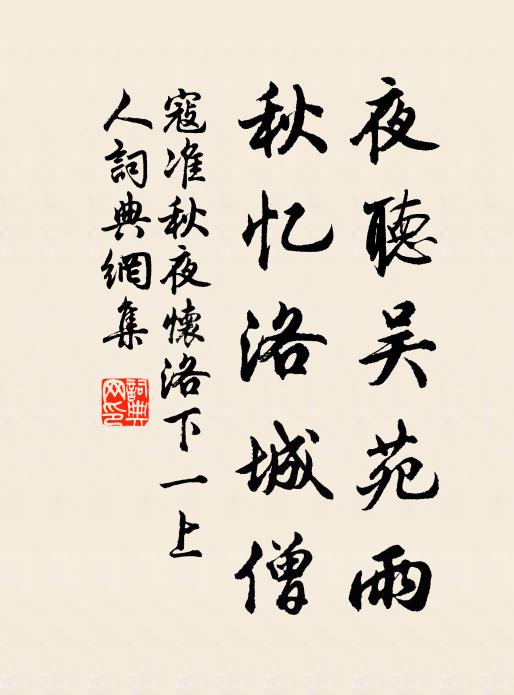 夜聽吴苑雨
秋忆洛城僧
寇准秋夜懷洛下一上
人詞典網集
詞典
网印